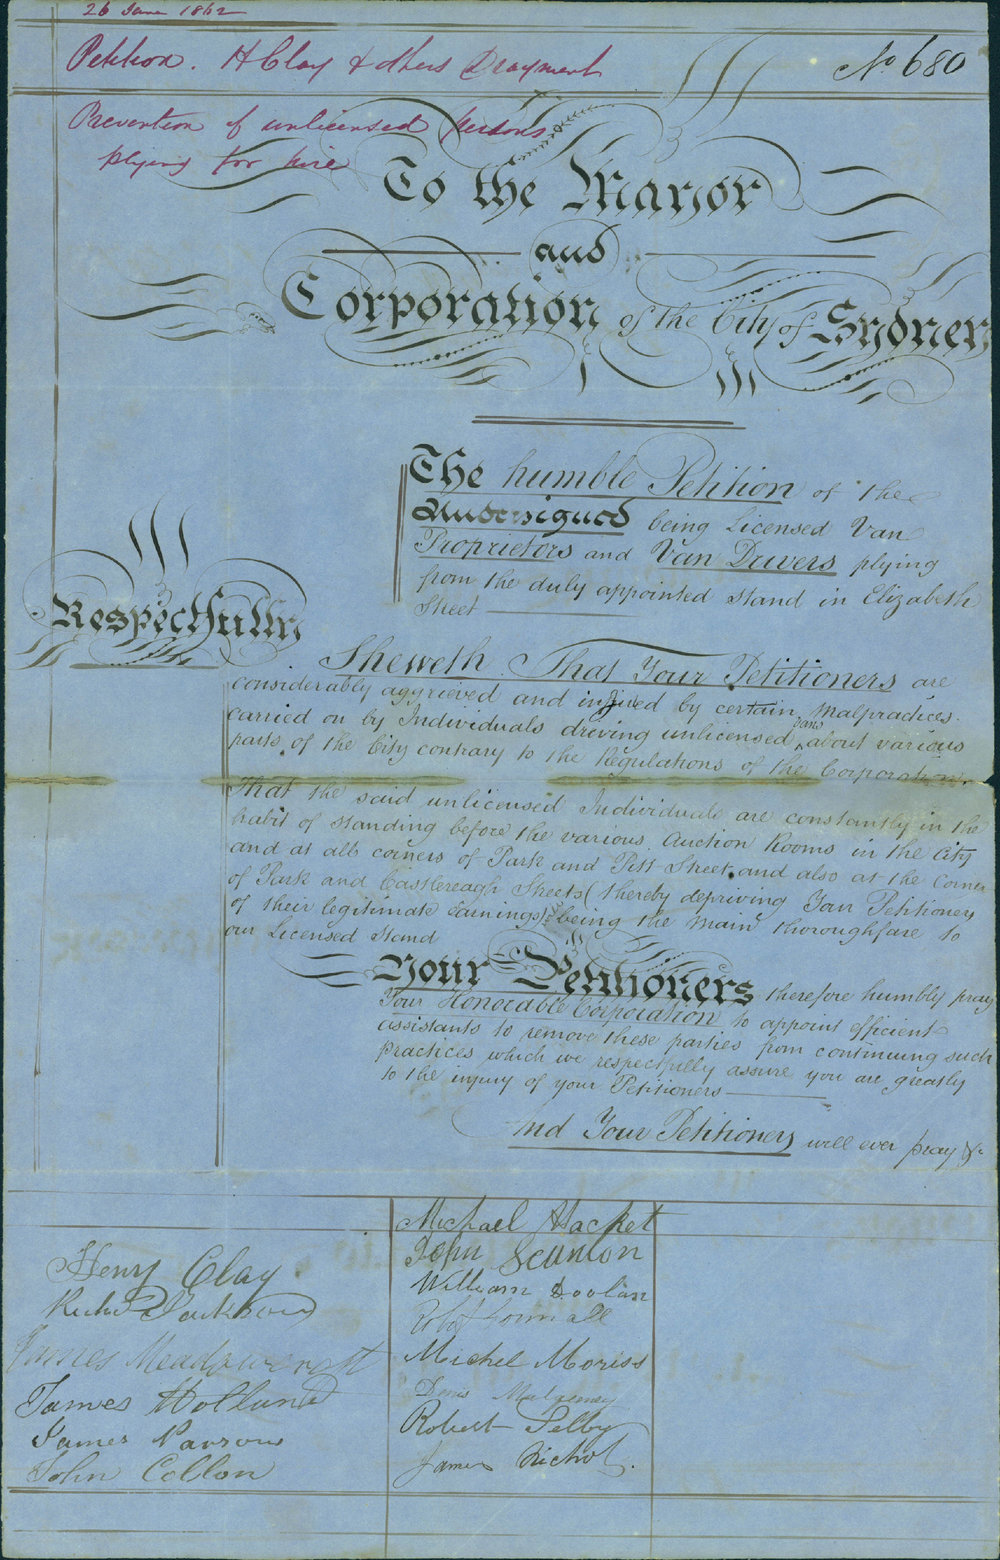 26 June 1862
Petition. H Clay & others Draymen
No 680
Prevention of unlicensed persons
plying for hire
To the Mayor
and
Corporation of the City of Sydney
The humble Petition of the
Undersigned being Licensed Van
Proprietors and Van Drivers plying
from the duly appointed Stand in Elizabeth
Street
Respectfully
Sheweth. That Your Petitioners are
considerably aggrieved and injured by certain Malpractices
carried on by Individuals driving unlicensed vans about various
parts of the City contrary to the Regulations of the Corporation.
That the said unlicensed Individuals are constantly in the
habit of standing before the various Auction Rooms in the City
and at all corners of Park and Pitt Street and also at the Corner
of Park and Castlereagh Streets (thereby depriving Your Petitioners
of their legitimate Earnings) being the main thoroughfare to
our Licensed Stand
Your Petitioners therefore humbly pray
Your Honorable Corporation to appoint efficient
assistants to remove these parties from continuing such
practices which we respectfully assure you are greatly
to the injury of your Petitioners
And Your Petitioners will ever pray &c
Henry Clay
Jackson
James Meadowcroft
James Holland
James Parsons
John Collon
Michael Hacket
John Scanlon
William Doolan
Robt
Michel Moriss
Denis Mulraney
Robert Selby
James Nichol.